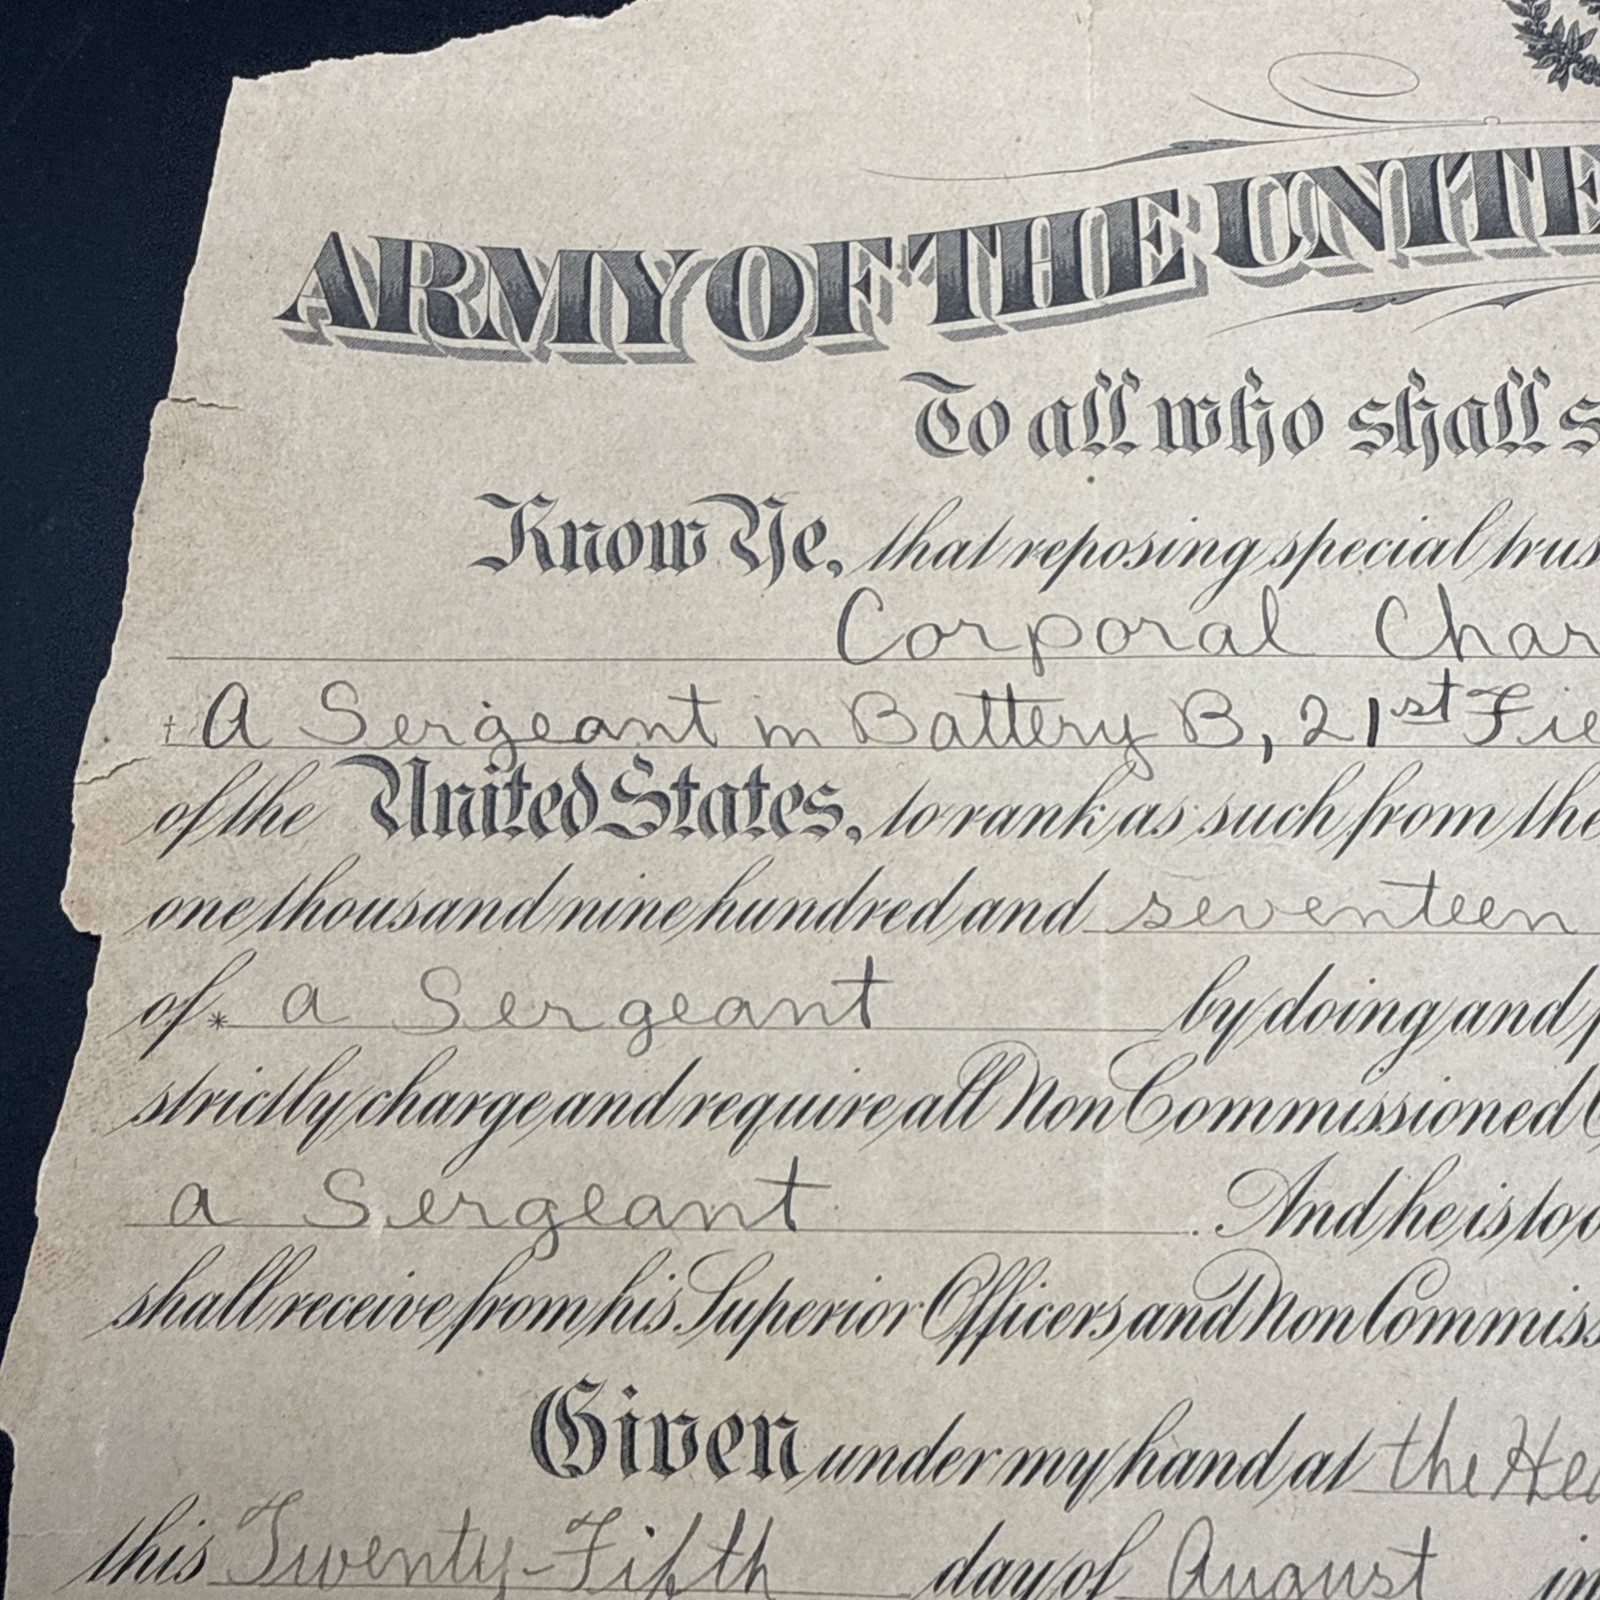 ARMY OF THE UNITE
To all who shall s
Know Ye, that reposing special trus
Corporal Char
† A Sergeant in Battery B, 21st Fie
of the United States, to rank as such from the
one thousand nine hundred and seventeen
of * a Sergeant by doing and p
strictly charge and require all Non Commissioned O
a Sergeant. And he is to o
shall receive from his Superior Officers and Non Commiss
Given under my hand at the Hea
this Twenty-Fifth day of August in